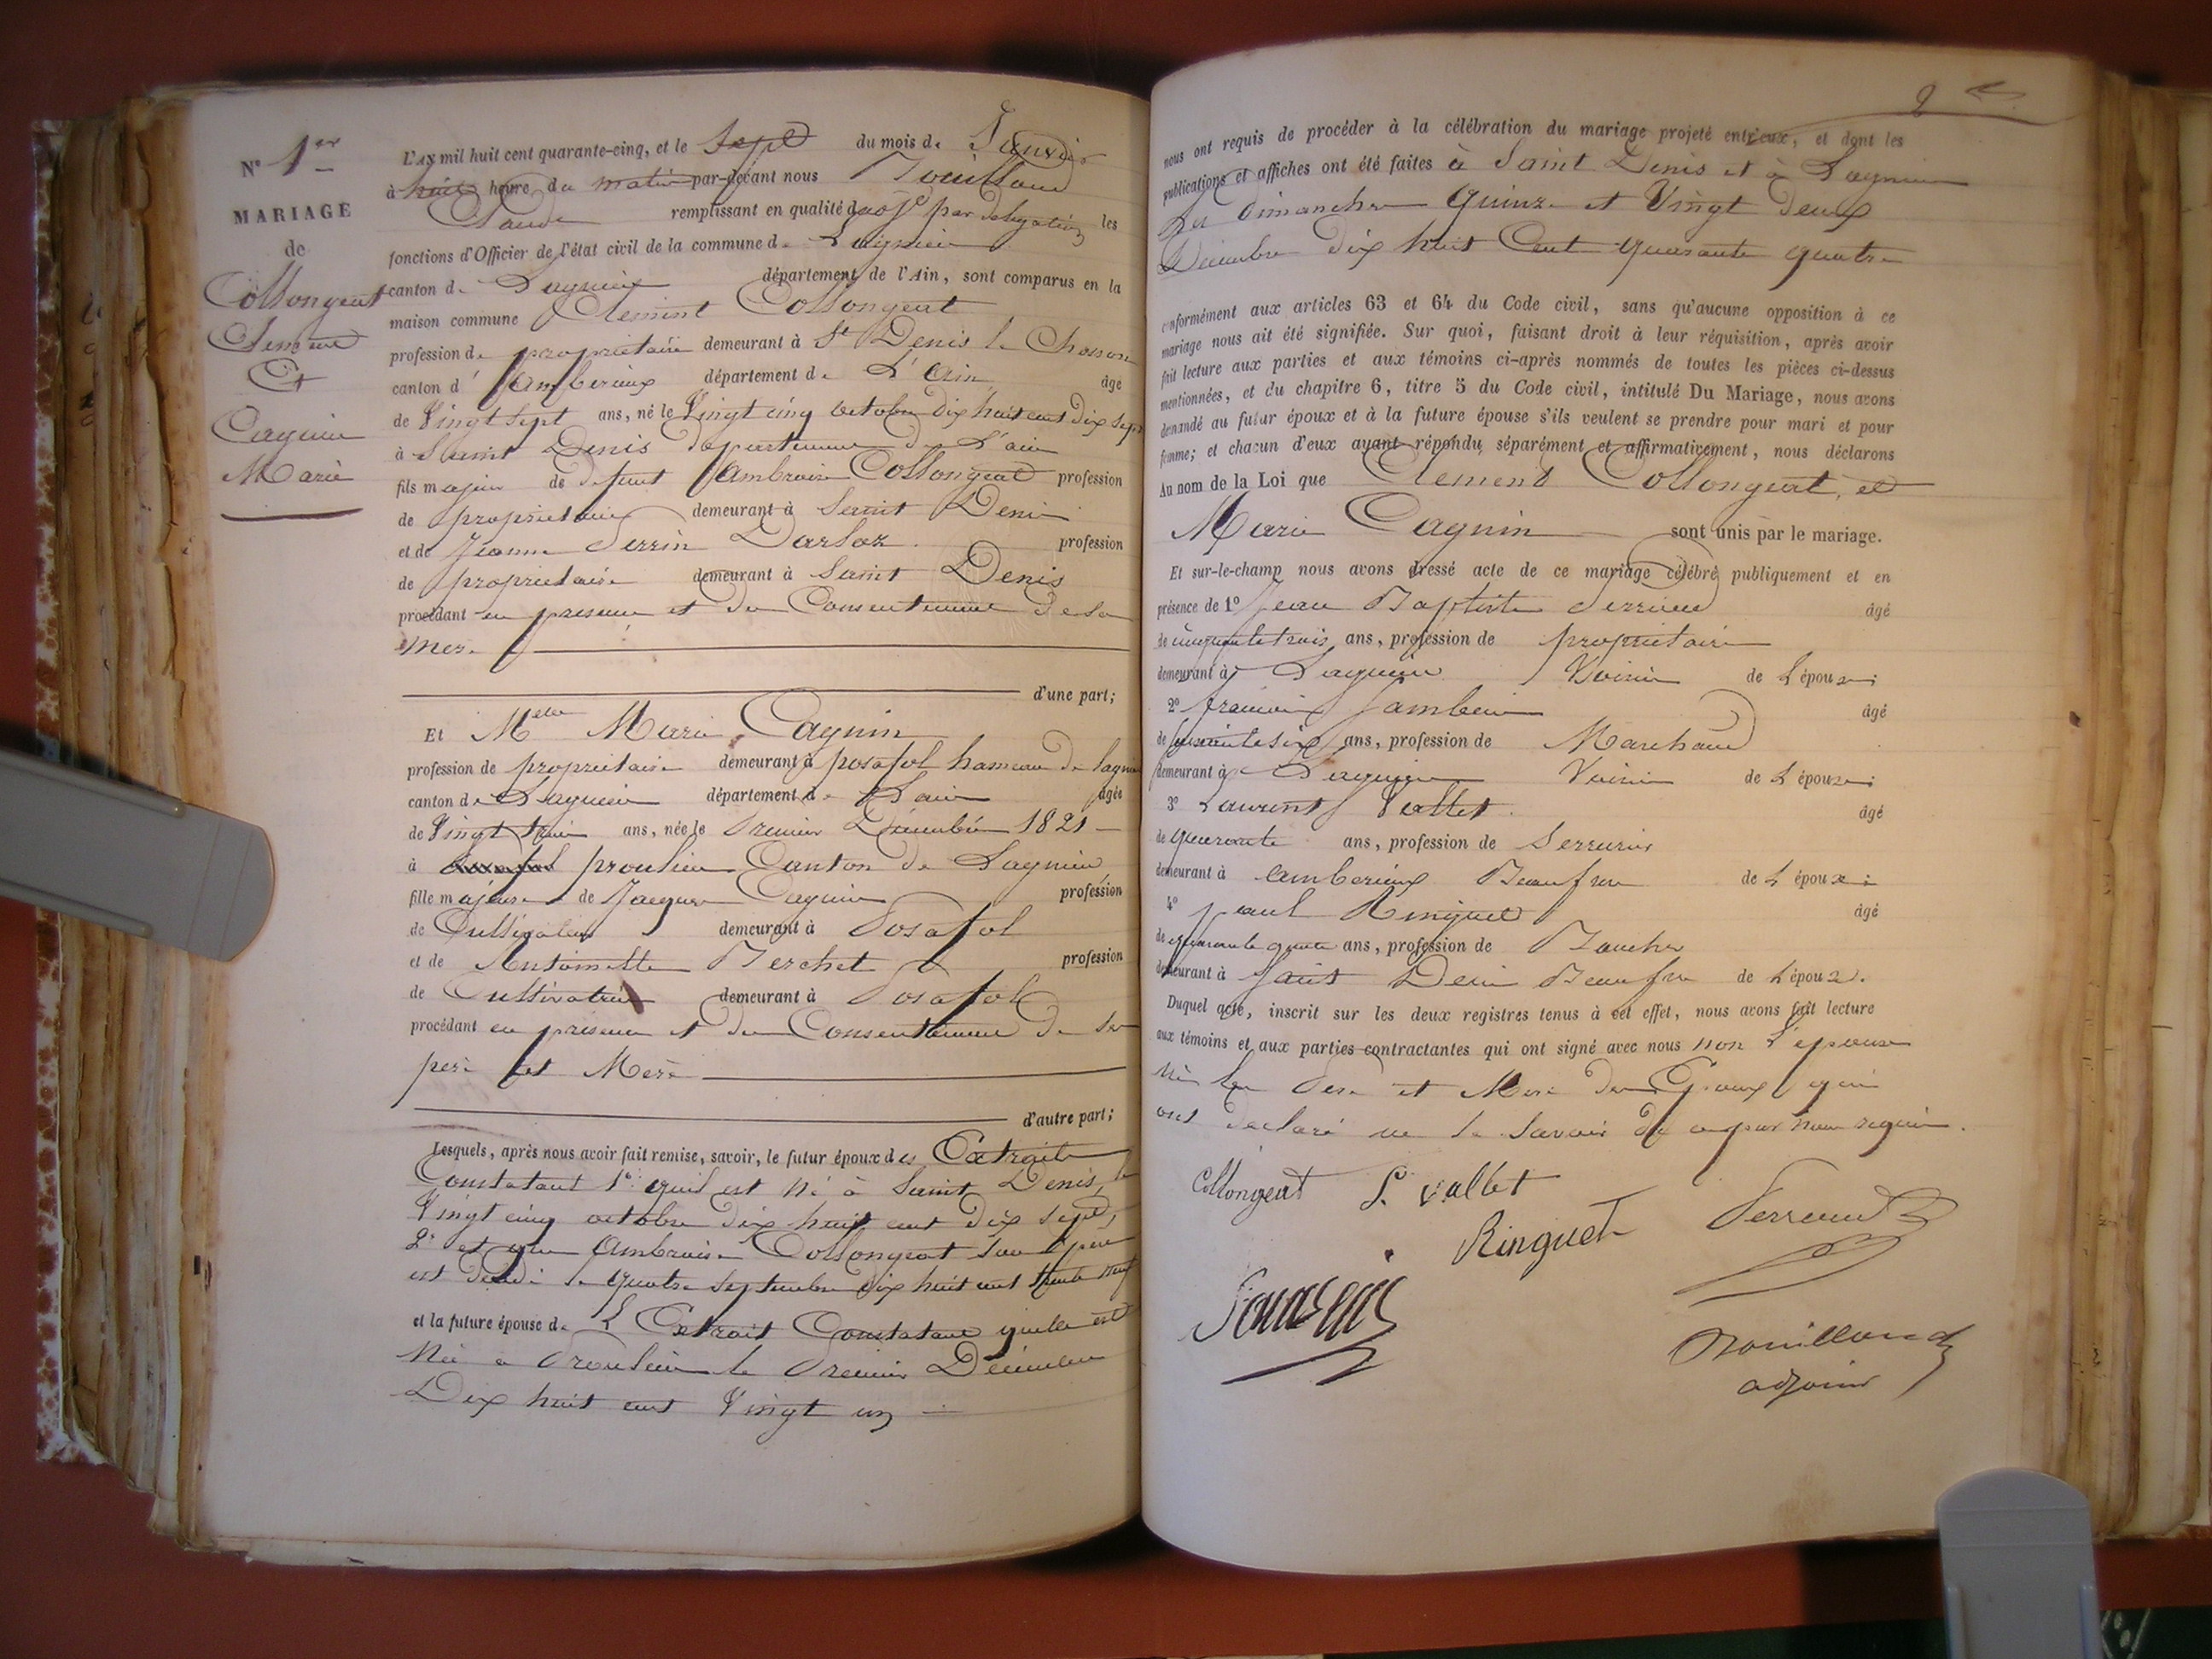 N° 1er
MARIAGE
de
Collongeat
Clement
Et
Cagnin
Marie
L'AN mil huit cent quarante-cinq, et le Sept du mois de Janvier
à huit heure du matin par-devant nous Bouilloud
Claude remplissant en qualité d'adjt par délégation les
fonctions d'Officier de l'état civil de la commune de Lagnieu
canton de Lagnieu département de l'Ain, sont comparus en la
maison commune Clement Collongeat
profession de propriétaire demeurant à St Denis le Chosson
canton d'Amberieux département de L'ain âgé
de Vingt sept ans, né le Vingt cinq octobre dix huit cent dix sept
à Saint Denis departement de L'ain
fils majeur de defunt Ambroise Collongeat profession
de propriétaire demeurant à Saint Denis
et de Jeanne Perrin Darloz profession
de propriétaire demeurant à Saint Denis
procédant en presence et du Consentement de sa
Mere
d'une part;
Et Melle Marie Cagnin
profession de propriétaire demeurant à posafol hameau de lagnieu
canton de Lagnieu département de L'ain âgée
de Vingt trois ans, née le Premier Décembre 1821
à proulieu Canton de Lagnieu
fille majeure de Jacques Cagnin profession
de Cultivateur demeurant à Posafol
et de Antoinette Berchet profession
de Cultivatrice demeurant à Posafol
procédant en presence et du Consentement de ses
père et Mère
d'autre part;
Lesquels, après nous avoir fait remise, savoir, le futur époux des Extraits
Constatant 1° quil est né à Saint Denis, le
Vingt cinq octobre dix huit cent dix sept,
2° et que Ambroise Collongeat son père
est décédé le quatre septembre dix huit cent trente neuf
et la future épouse de L'Extrait Constatant quelle est
Née a Proulieu le Premier Décembre
Dix huit cent Vingt un
2
nous ont requis de procéder à la célébration du mariage projeté entr'eux, et dont les
publications et affiches ont été faites à Saint Denis et à Lagnieu
Les dimanches Quinze et Vingt deux
Décembre dix huit Cent quarante quatre
conformément aux articles 63 et 64 du Code civil, sans qu'aucune opposition à ce
mariage nous ait été signifiée. Sur quoi, faisant droit à leur réquisition, après avoir
fait lecture aux parties et aux témoins ci-après nommés de toutes les pièces ci-dessus
mentionnées, et du chapitre 6, titre 5 du Code civil, intitulé Du Mariage, nous avons
demandé au futur époux et à la future épouse s'ils veulent se prendre pour mari et pour
femme; et chacun d'eux ayant répondu séparément et affirmativement, nous déclarons
Au nom de la Loi que Clement Collongeat, et
Marie Cagnin sont unis par le mariage.
Et sur-le-champ nous avons dressé acte de ce mariage célébré publiquement et en
présence de 1° Jean Baptiste Perraud âgé
de cinquante trois ans, profession de propriétaire
demeurant à Lagnieu Voisin de L'épouse;
2° françois Jambein âgé
de ans, profession de Marchand
demeurant à Lagnieu Voisin de L'épouse;
3° Laurent Vallet âgé
de quarante ans, profession de Serrurier
demeurant à amberieux Beaufrere de L'époux;
4° paul Ringuet âgé
de quarante quatre ans, profession de Boucher
demeurant à Saint Denis Beaufrere de L'époux.
Duquel acte, inscrit sur les deux registres tenus à cet effet, nous avons fait lecture
aux témoins et aux parties contractantes qui ont signé avec nous non L'épouse
Ni les Pere et Mere des Epoux qui
ont declaré ne le savoir de ce par nous requis.
Collongeat L. vallet
Ringuet Perraud
Bouilloud
adjoint